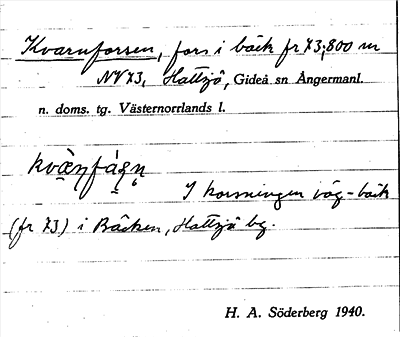 Kvarnforsen, fors i bäck fr X3; 800 m
NV X3, Hattsjö, Gideå sn Ångermanl.
n. doms. tg. Västernorrlands l.
I korsningen väg-bäck
(fr X3) i Bäcken, Hattsjö bg.
H. A. Söderberg 1940.